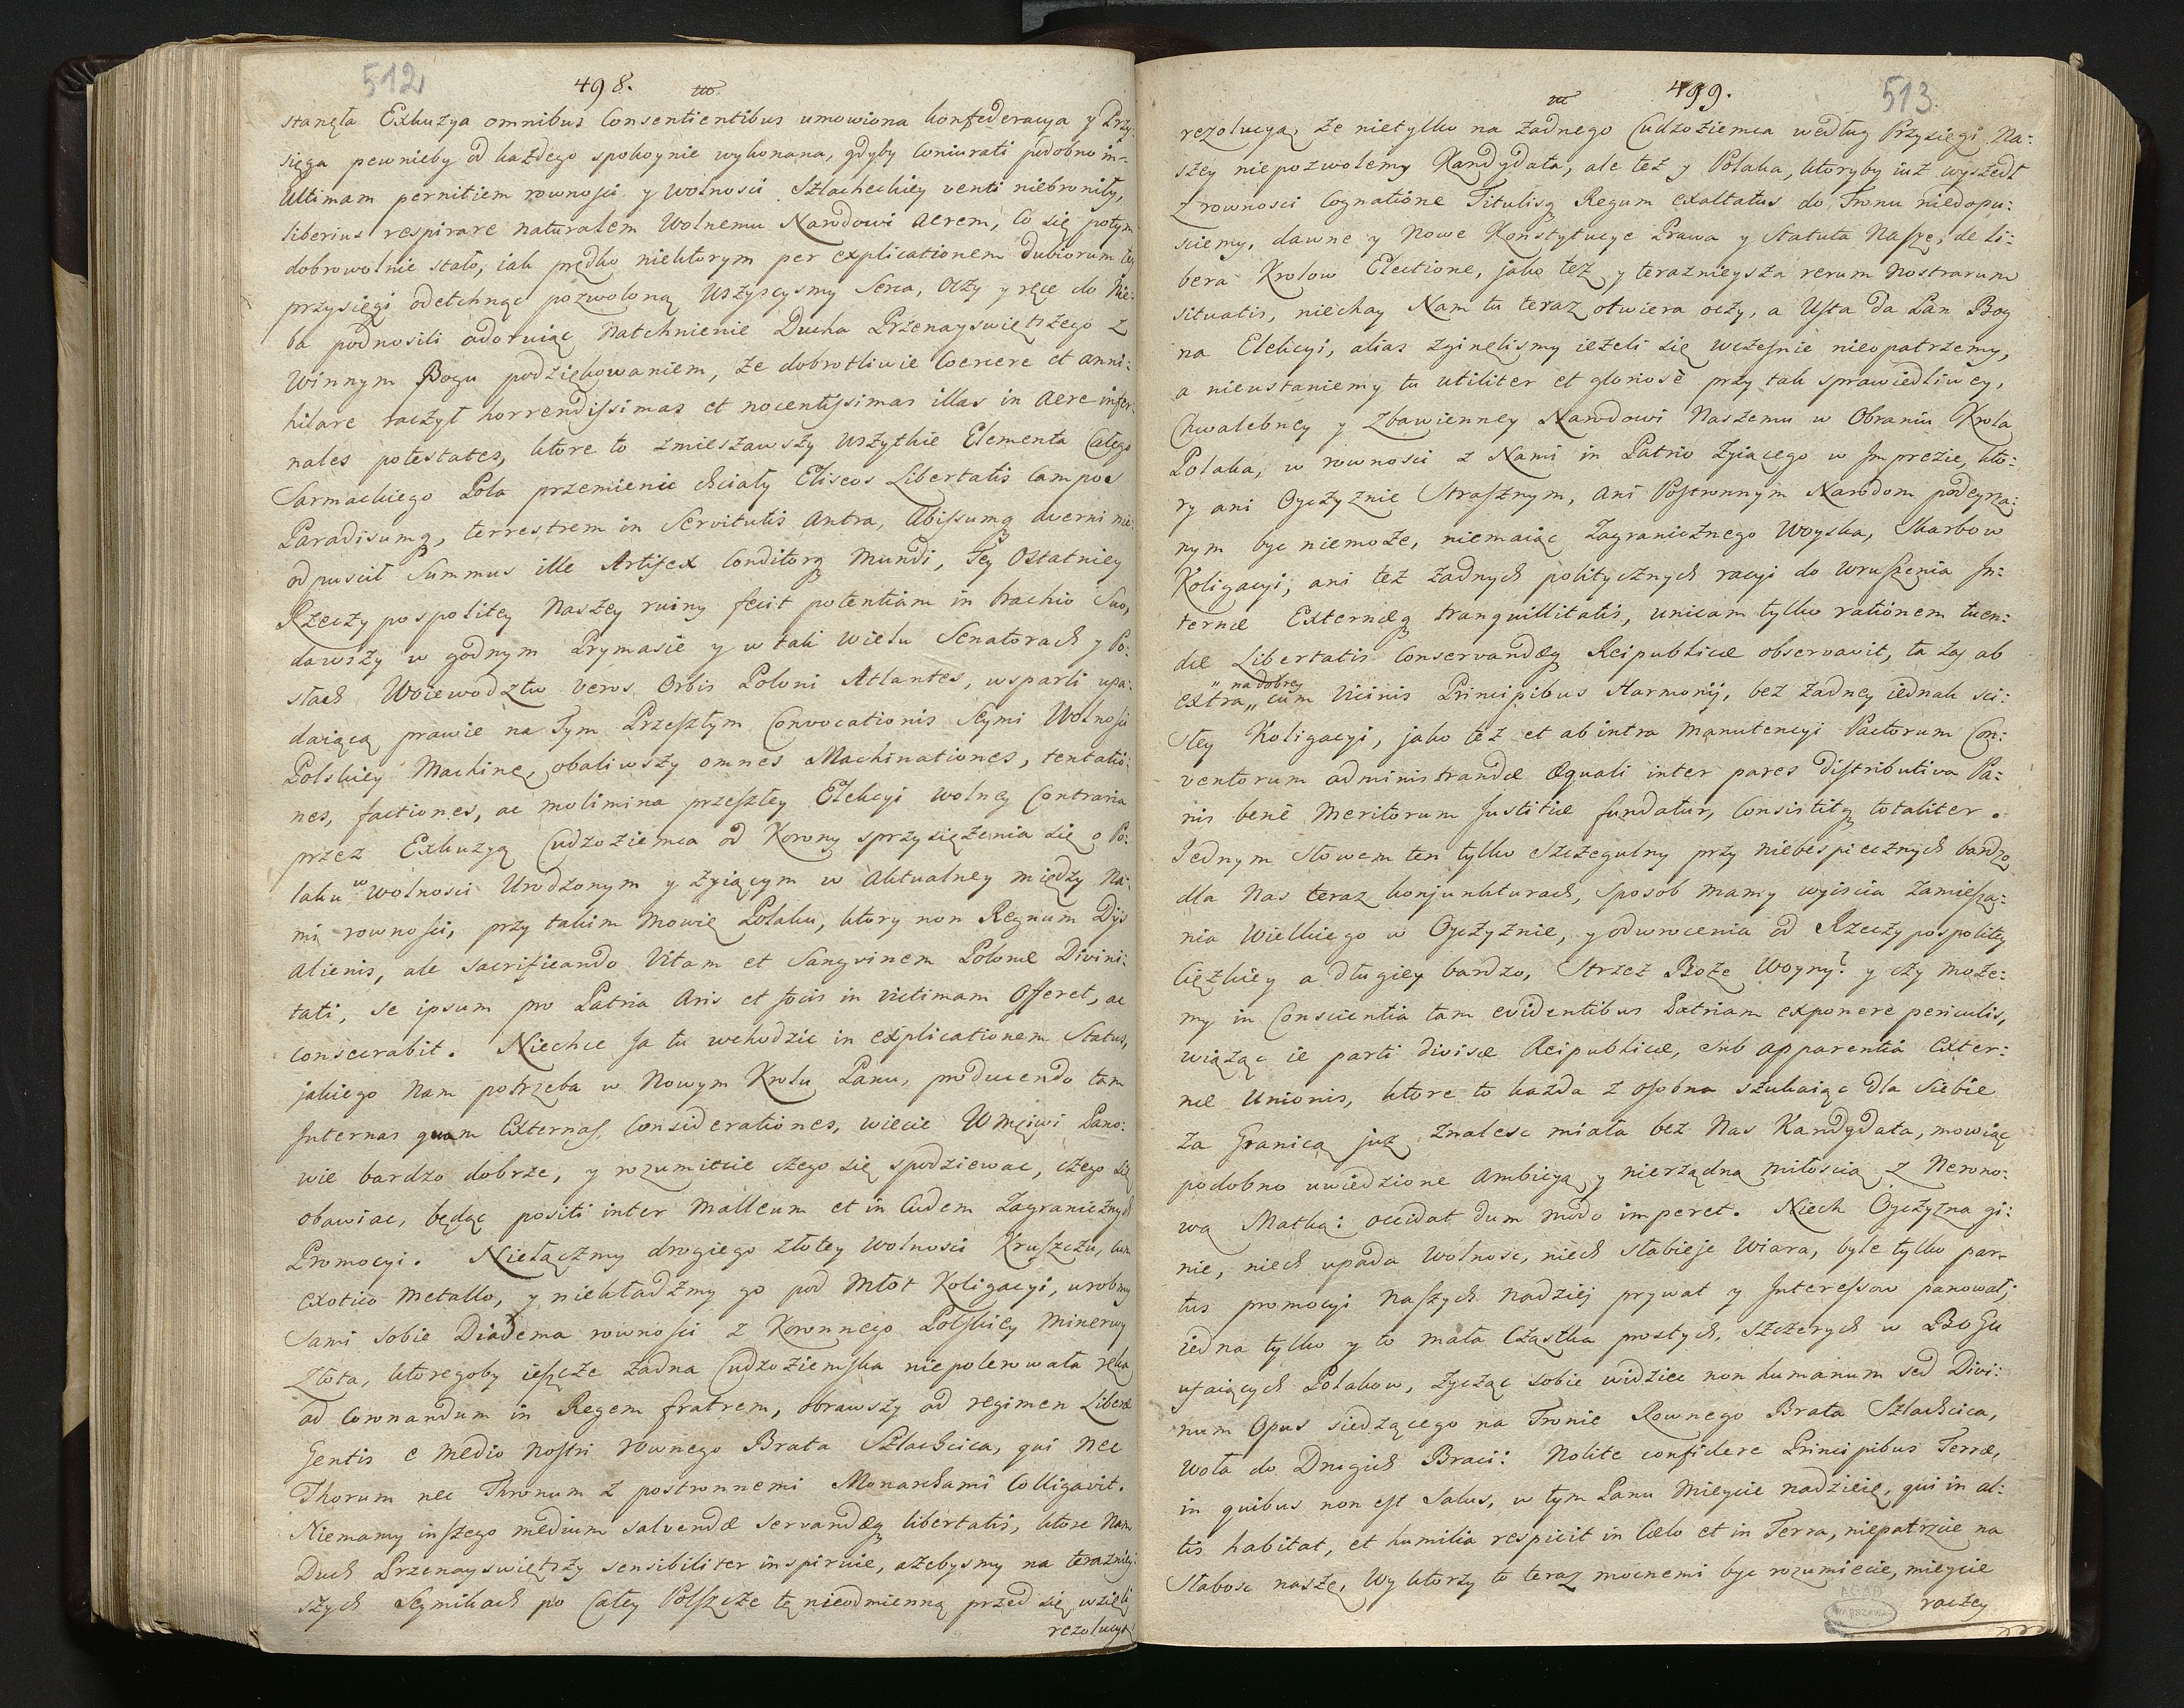 512
498.
stanęła Exkuzya omnibus Consentientibus umowiona konfederacya y Przy:
sięga pewnieby od każdego spokoynie wykonana, gdyby Coniurati podobno in
Ultimam pernitiem rownosci y wolnosci Szlacheckiey venti niebronili,
liberius respirare naturalem Wolnemu Narodowi Aerem, Co się potym
dobrowolnie stało, iak prędko niektorym per explicationem Dubiorum tey
przysięgi odetchnąć pozwoloną Wszyscysmy Serca, Oczy y ręce do Nie:
ba podnosili adoruiąc Natchnienie Ducha Przenayswiętszego z
Winnym Bogu podziękowaniem, że dobrotliwie Coercere et anni:
hilare raczył horrendissimas et nocentissimas illas in Aere infer:
nales potestates, ktore to zmieszawszy wszytkie Elementa Całego
Sarmackiego Pola przemienić chciały Eliseos Libertatis Campos
Paradisumq, terrestrem in Servitutis Antra, Abissumq averni nie:
odpuscił Summus ille Artifex Conditorq Mundi, Tey Ostatniey
Rzeczypospolitey Naszey ruiny fecit potentiam in brachio Suo,
dawszy w godnym Prymasie y w tak wielu Senatorach y Po:
słach Woiewodztw veros Orbis Poloni Atlantes, wsparli upa:
daiącą prawie na Tym Przeszłym Convocationis Seymi Wolnosci
Polskiey Machinę, obaliwszy omnes Machinationes, tentatio:
nes, factiones, ac molimina przeszłey Elekcyi wolney Contraria
przez Exkuzyą Cudzoziemca od Korony sprzysiężenia się o Po:
laku w Wolnosci Urodzonym y Zyiącym w Aktualney między Na:
mi rownosci, przy takim mowię Polaku, ktory non Regnum Dijs
Alienis, ale sacrificando Vitam et Sangvinem Polonæ Divini:
tati, se ipsum pro Patria Aris et focis in Victimam Offeret, ac
consecrabit. Niechce Ja tu wchodzic in explicationem Status,
jakiego Nam potrzeba w Nowym Krolu Panu, producendo tam
Internas quam Externas Considerationes, wiecie Wmciwi Pano:
wie bardzo dobrze, y rozumiecie czego się spodziewac, czego się
obawiac, będąc positi inter Malleum et in Cudem Zagranicznych
Promocyi. Niełączmy drogiego złotey wolnosci Kruszczu, cum
Exotico Metallo, y niekładźmy go pod Młot Koligacyi, urobmy
Sami sobie Diadema rownosci z Koronnego Polskiey Minerwy
Złota, ktoregoby ieszcze żadna Cudzoziemska niepolerowała ręka
ad Coronandum in Regem fratrem, obrawszy ad regimen Liberæ
Gentis e medio Nostri rownego Brata Szlachcica, qui nec
Thorum nec Thronum z postronnemi Monarchami Colligavit.
Niemamy inszego medium salvendæ servandæq libertatis, ktore Nam
Duch Przenayswiętszy sensibiliter inspiruie, ażebysmy na teraznieÿ:
szych Seymikach po Całey Polszcze tę nieodmienną przed się wzięli
rezolucyą
499.
513.
rezolucyą, że nietylko na żadnego Cudzoziemca według Przysięgi Na:
szey niepozwolemy Kandydata, ale też y Polaka, ktoryby iuż wyszedł
z rownosci Cognatione Titulisq Regum exaltatus do Tronu niedopu:
sciemy, dawne y Nowe Konstytucye Prawa y Statuta Nasze, de Li:
bera Krolow Electione, jako też y teraznieysza rerum nostrarum
situatis, niechay Nam tu teraz otwiera oczy, a Usta da Pan Bog
na Elekcyi, alias zginęlismy ieżeli się wczesnie nieopatrzemy,
a nieustaniemy tu utiliter et gloriosè przy tak sprawiedliwey,
Chwalebney y Zbawienney Narodowi Naszemu w Obraniu Krola
Polaka, w rownosci z Nami in Patrio Zyiącego w Imprezie, kto:
ry ani Oyczyznie Strasznym, ani Postronnym Narodom podeyrza:
nym byc niemoże, niemaiąc Zagranicznego Woyska, Skarbow
Koligacyi, ani też żadnych politycznych racyi do wruszenia In:
ternæ Externæq tranquillitatis, unicam tylko rationem tuen:
dæ Libertatis Conservandæq Reipublicæ observavit, ta zas ab
extra „ na dobrey „ cum Vicinis Principibus Harmonij, bez żadney iednak sci:
słey Koligacyi, jako też et ab intra Manutencyi Pactorum Con:
ventorum administrandæ æquali inter pares Distributiva Pa:
nis benè Meritorum Justitiæ fundatur, Consistitq totaliter.
Jednym słowem ten tylko szczegulny przy niebespiecznych bardzo
dla Nas teraz konjunkturach, sposob mamy wyiscia zamiesza:
nia Wielkiego w Oyczyznie, y odwrocenia od Rzeczypospolitey
Cięzkiey a długiey bardzo, Strzez Boże Woyny? y czy może:
my in Conscientia tam evidentibus Patriam exponere periculis,
wiążąc ie parti divisæ Reipublicæ, sub apparentia Exter:
næ Unionis, ktore to każda z osobna szukaiąc dla Siebie
za Granicą już znalesc miała bez Nas Kandydata, mowiąc
podobno uwiedzione Ambicyą y nierządną miłoscią z Nerono:
wą Matką: occidat dum modo imperet. Niech Oyczyzna gi:
nie, niech upada Wolnosc, niech słabieje Wiara, byle tylko par-
tus promocyi Naszych nadziej prywat y Interessow panował;
iedna tylko y to mała Cząstka prostych, szczerych w BoGu
ufaiących Polakow, życząc sobie widziec non humanum sed Divi:
num Opus siedzącego na Tronie Rownego Brata Szlachcica,
Woła do Drugich Braci: Nolite confidere Principibus Terræ,
in quibus non est Salus, w tym Panu Mieycie nadzieię, qui in al:
tis habitat, et humilia respicit in Cælo et in Terra, niepatrzcie na
Słabosc naszę, Wy ktorzy to teraz mocnemi byc rozumiecie, mieycie
raczey
AGAD
WARSZAWA